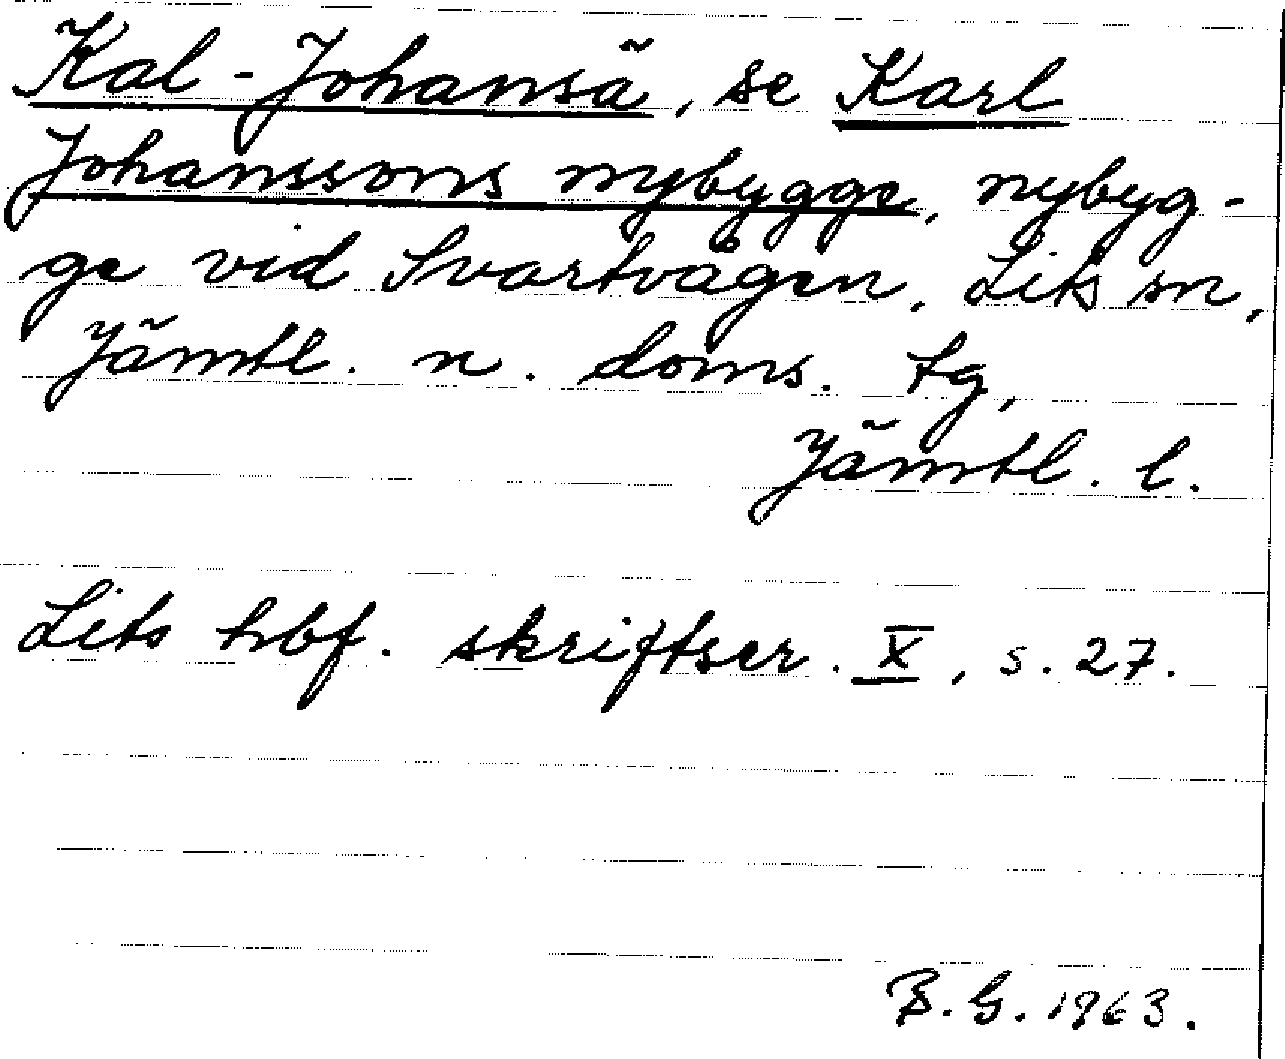 Kal-Johansä, se Karl
Johanssons nybygge, nybyg-
ge vid Svartvågen, Lits sn,
Jämtl. n. doms. tg,
Jämtl. l.
Lits hbf. skriftser. X, s. 27.
B. G. 1963.